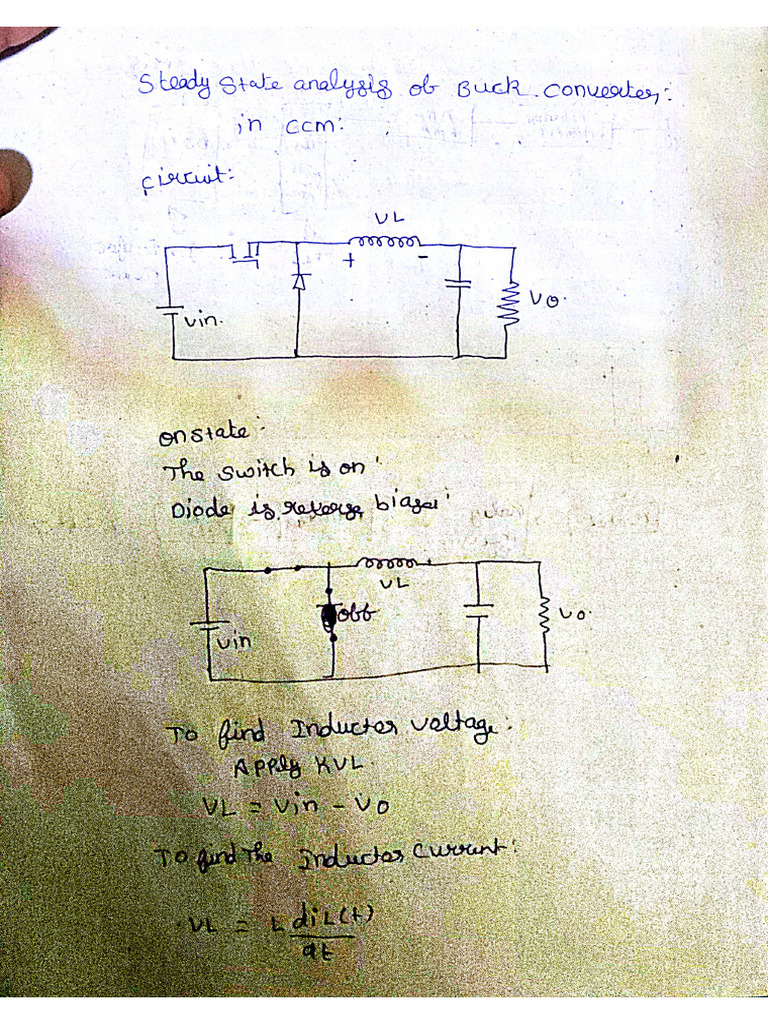 Steady State analysis of Buck converter:
in CCM:
circuit:
VL
+ -
Vin.
Vo.
on state:
The switch is on:
Diode is reverse biased:
VL
off
Vin
Vo.
To find Inductor voltage:
Apply KVL.
VL = Vin - Vo
To find The Inductor Current:
VL = L diL(t)
dt